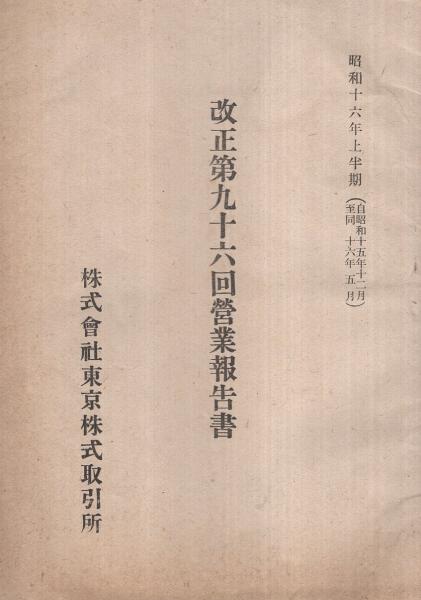 昭和十六年上半期
(自昭和十五年十二月
至同 十六年 五 月)
改正第九十六回營業報告書
株式會社東京株式取引所